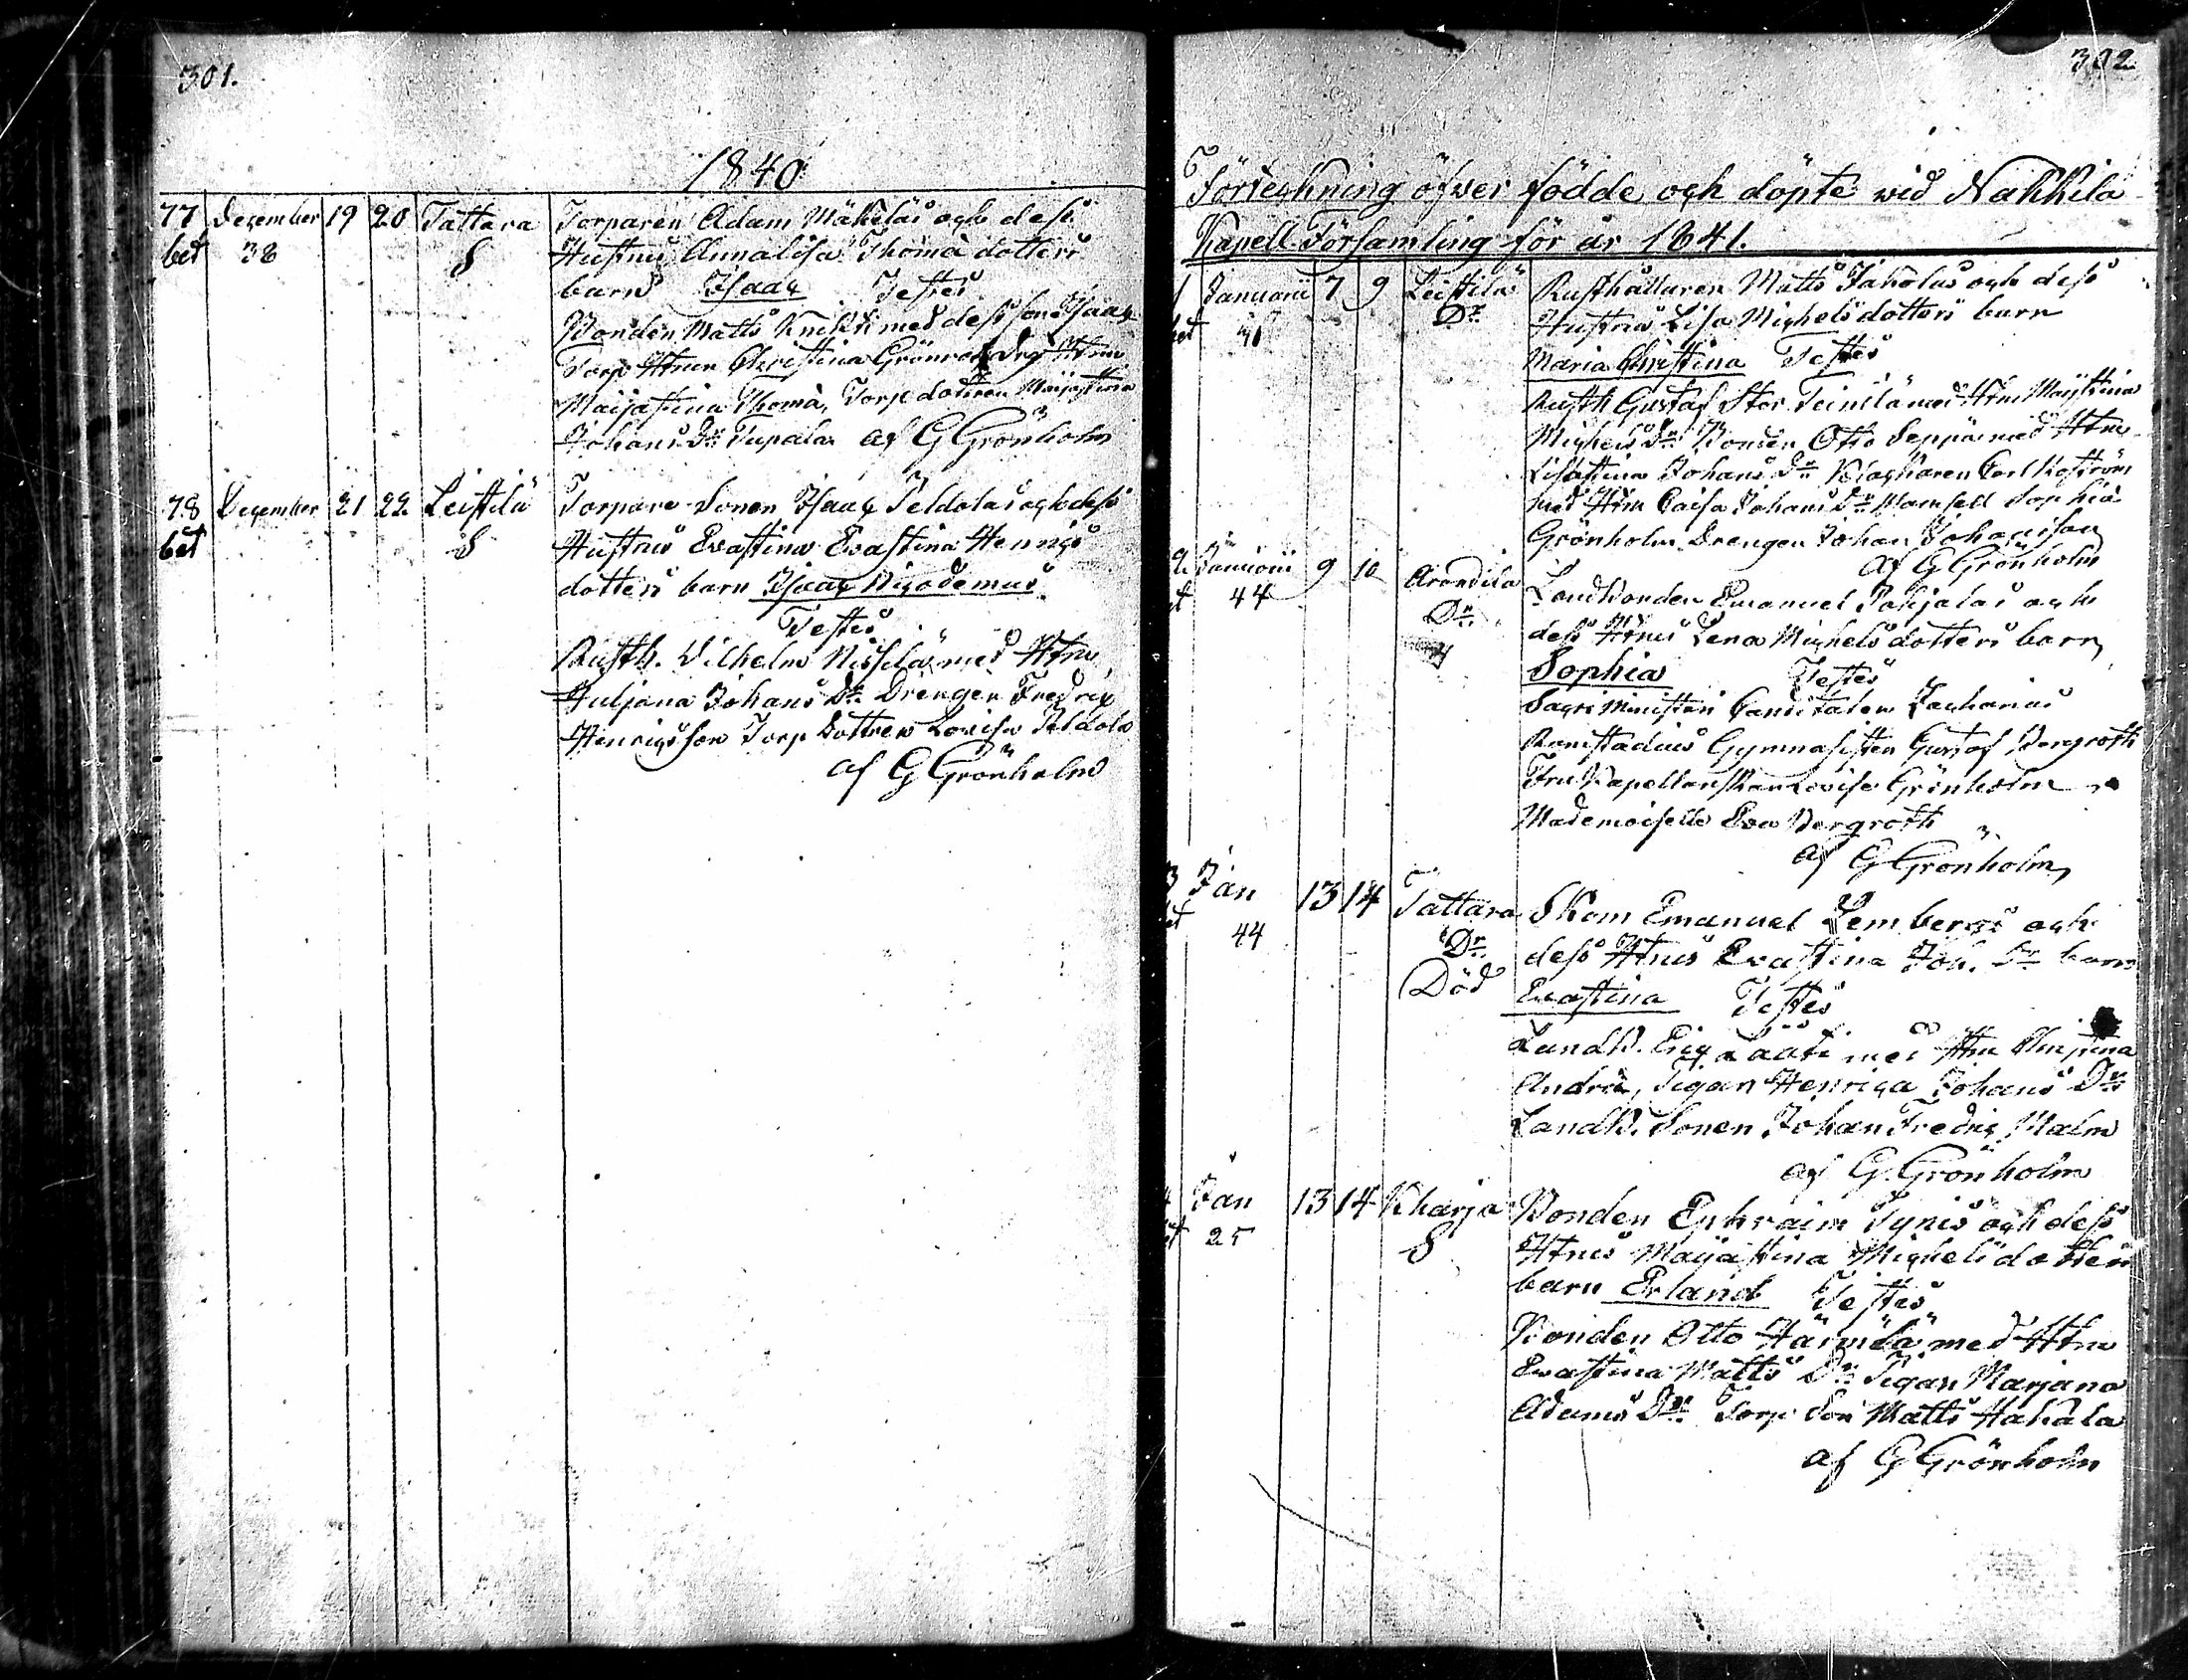 301.
1840
77 December 19 20 Tattara Torparen Adam Mäkeläs och dess
bet 38 S Hustrus Annalisa Thomä dotters
barn Isaac Testes
Bonden Matts Knihti med dess son Isaac
Torp Hnen Christina Grönroos Drg Hrn
Maijastina Thomä, Torp dottren Maijastina
Johans Dr Tupala af G Grönholm
78 December 21 22 Leistilä Torpare Sonen Isaac Peldolas och dess
bet S Hustrus Evastina Evastina Henrics
dotters barn Isaac Nicodemus
Testes
Rusth. Vilhelm Nissilä med Hru
Juljana Johans Dr Drengen Fredric
Henricsson Torp Dottren Lovisa Peldola
af G Grönholm
302
Förteckning öfver födde och döpte wid Nakkila
Kapell Församling för år 1841.
1 Januarii 7 9 Leistilä Rusthållaren Matts Jaholas och dess
bet Dr Hustrus Lisa Michels dotters barn
Maria Christina Testes
Rusth Gustaf Stor Teinilä med Hru Maijstina
Michels Dr Bonden Otto Seppä med Hru
Lisastina Johans Dr Klockaren Carl Hoström
med Hru Caisa Johans Dr Mamsell Sophia
Grönholm Drengen Johan Johansson
af G Grönholm
2 Januarii 9 10 Arondila Landbonden Emanuel Pohjalas och
bet 44 Dr dess Hrus Lena Michels dotters barn
Sophia Testes
Sacri Ministeri Canditaten Zacharias
Ramstadius Gymnasisten Gustaf Bergroth
Fru Kapellanskan Lovisa Grönholm
Mademoiselle Eva Bergroth
af G Grönholm
3 Jan 13 14 Tattara Skom Emanuel Lembergs och
bet 44 Dr dess Hrus Evastina Joh. Dr barn
Död Evastina Testes
Landb. Eric Lääti med Hru
Andrä, Pigan Henrica Johans Dr
Landb. Sonen Johan Fredric Malm
af G. Grönholm
4 Jan 13 14 Kharja Bonden Ephraim Tynis och dess
bet 25 S Hrus Maijastina Michels dotters
barn Erland Testes
Bonden Otto Härmälä med Hru
Evastina Matts Dr Pigan Marjana
Adams Dr Torp Son Matts Hakala
af G Grönholm